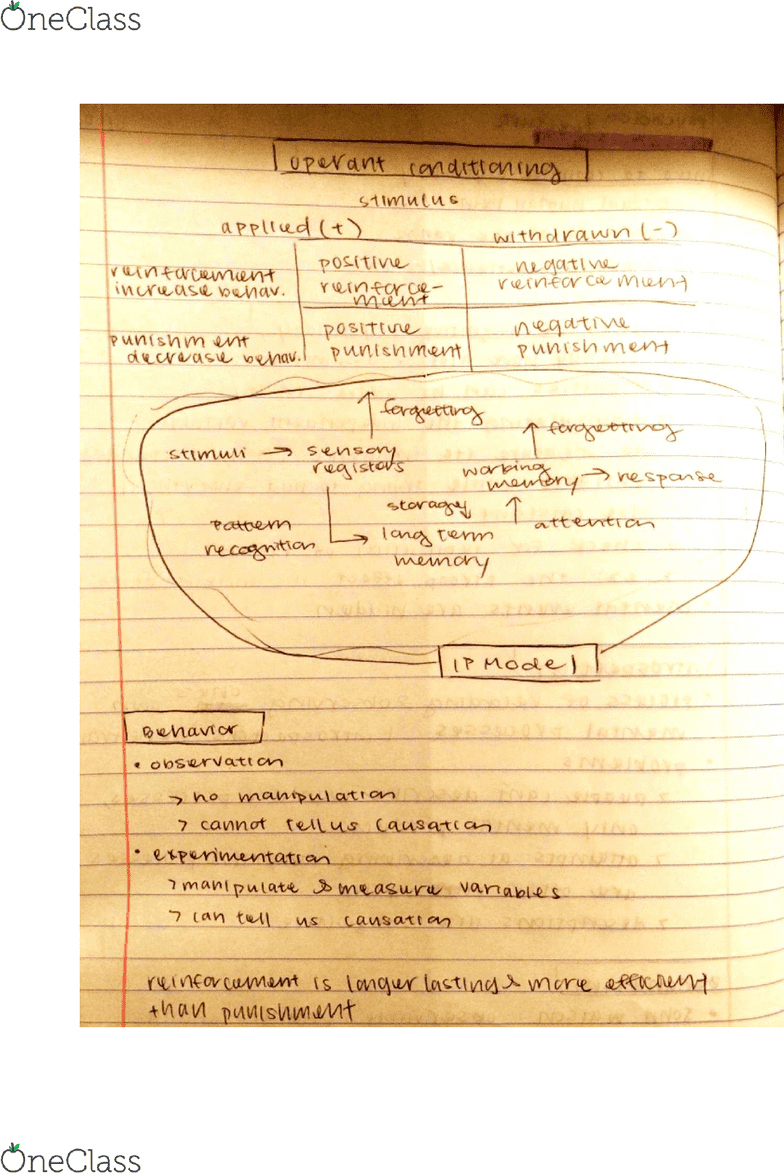 OneClass
operant conditioning
stimulus
applied (+) withdrawn (-)
reinforcement
increase behav.
positive
reinforce-
ment
negative
reinforcement
punishment
decrease behav.
positive
punishment
negative
punishment
forgetting
forgetting
stimuli → sensory
registors
working
memory → response
storage
attention
pattern
recognition
long term
memory
IP Model
Behavior
• observation
> no manipulation
> cannot tell us causation
• experimentation
> manipulate & measure variables
> can tell us causation
reinforcement is longer lasting & more efficient
than punishment
OneClass